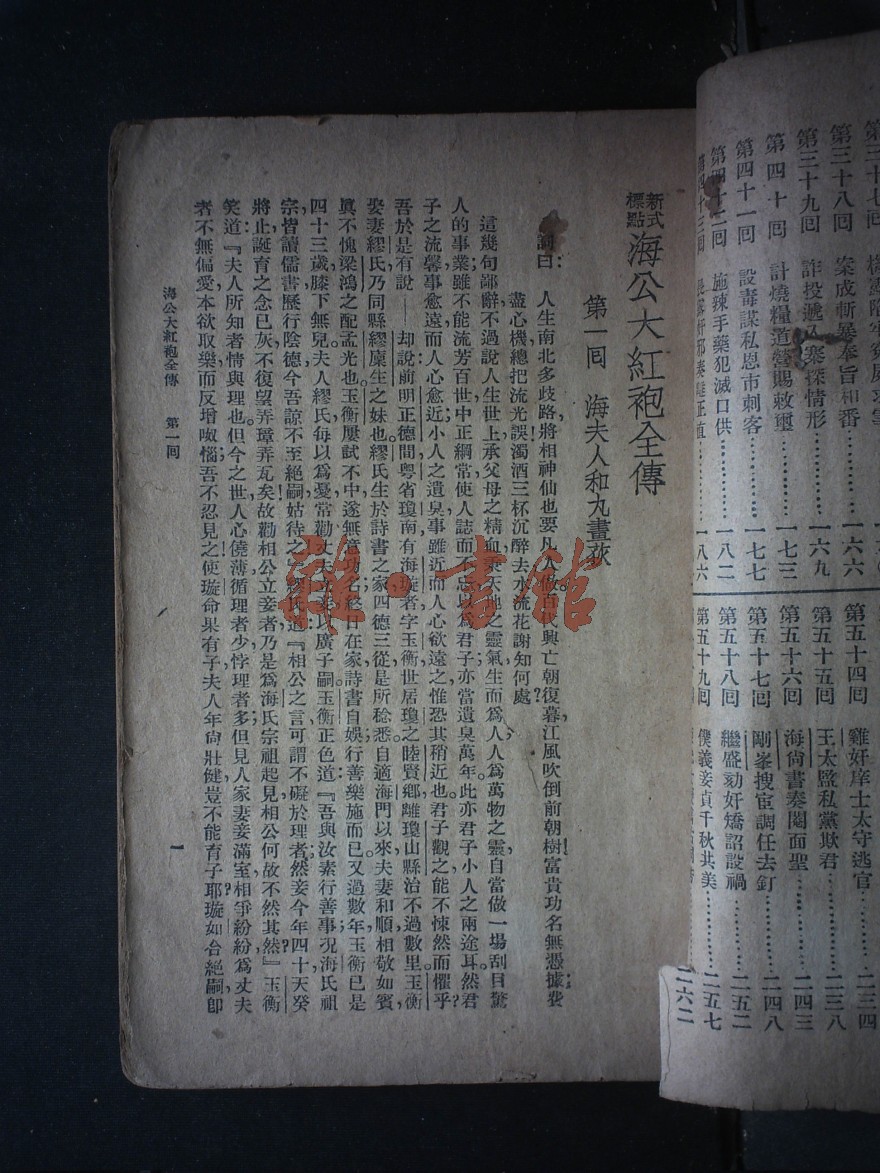 第三十八回 案成斬暴奉旨和番………一六六
第三十九回 詐投遞入寨探情形………一六九
第四十回 計燒糧道營賜敕璽………一七三
第四十一回 設毒謀私恩市刺客………一七七
第四十二回 施辣手藥犯滅口供………一八二
第四十三回
一八六
第五十四回 雞奸庠士太守逃官………二三四
第五十五回 王太監私黨欺君………二三八
第五十六回 海尚書奏閹面聖………二四三
第五十七回 剛峯搜宦調任去釘………二四八
第五十八回 繼盛劾奸矯詔設禍………二五二
第五十九回 僕義妾貞千秋共美………二五七
二六二
新式標點 海公大紅袍全傳
第一回 海夫人和丸畫荻
詞曰:人生南北多歧路,將相神仙也要凡人做百代興亡朝復暮,江風吹倒前朝樹!富貴功名無憑據費
盡心機總把流光誤濁酒三杯沉醉去水流花謝知何處?
這幾句鄙辭不過說人生世上承父母之精血秉天地之靈氣生而爲人,人爲萬物之靈自當做一場刮目驚
人的事業雖不能流芳百世中正綱常使人誌而不忘以爲君子亦當遺臭萬年。此亦君子小人之兩途耳。然君
子之流馨事愈遠而人心愈近小人之遺臭事雖近而人心欲遠之惟恐其稍近也。君子觀之能不悚然而懼乎?
吾於是有說——却說前明正德間粵省瓊南有海璇者字玉衡世居瓊之睦賢鄉,離瓊山縣治不過數里,玉衡
娶妻繆氏乃同縣繆廩生之妹也繆氏生於詩書之家四德三從是所稔悉。自適海門以來夫妻和順相敬如賓
眞不愧梁鴻之配孟光也。玉衡屢試不中遂無意功名,終日在家詩書自娛行善樂施而已。又過數年,玉衡已是
四十三歲膝下無兒,夫人繆氏每以爲憂常勸丈夫立妾以廣子嗣玉衡正色道:『吾與汝素行善事,况海氏祖
宗皆讀儒書歷行陰德今吾諒不至絕嗣姑待之』繆氏道:『相公之言可謂不礙於理者,然妾今年四十天癸
將止,誕育之念已灰不復望弄璋弄瓦矣故勸相公立妾者乃是爲海氏宗祖起見相公何故不然其然』玉衡
笑道:『夫人所知者情與理也。但今之世人心僥薄循理者少悖理者多但見人家妻妾滿室,相爭紛紛爲丈夫
者不無偏愛本欲取樂而反增惱惱吾不忍見之使璇命果有子夫人年尙壯健豈不能育子耶?璇如合絕嗣卽
海公大紅袍全傳 第一回 一
雜·書館